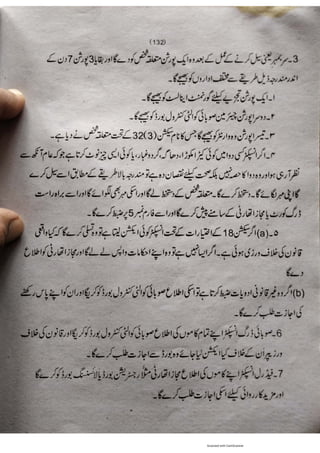 (132)
3۔ سربمہر یعنی سیل کرنے کے عمل کے بعد وہ ایک پورشن متعلقہ شخص کو دے گا اور بقایا 3 پورشن 7 دن کے
اندر مندرجہ ذیل طریقے سے مختلف اداروں کو بھیجے گا۔
۱۔ ایک پورشن تجزیے کیلئے گورنمنٹ اینالسٹ کو بھیجے گا۔
۲۔ دوسرا پورشن چیئرمین صوبائی کوالٹی کنٹرول بورڈ کو بھیجے گا۔
۳۔ تیسرا پورشن وہ وارنٹر کو بھیجے گا جس کا نام سیکشن (3)32 کے تحت متعلقہ شخص نے دیا ہے۔
۴۔ اگر انسپکٹر کسی دوا میں کوئی کیڑا مکوڑا، دھاگہ، گرد و غبار، یا کوئی ایسی چیز نوٹ کرتا ہے جو کہ عام آنکھ سے
نظر آ رہی ہو اور وہ دوا کا حصہ نہیں بلکہ صحت کیلئے نقصان دہ ہے تو مندرجہ بالا طریقے کے مطابق اسے سیل کرے
گا اپنی مہر لگائے گا۔ دستخط کرے گا۔ متعلقہ شخص کے دستخط لے گا اور اسکی مہر بھی لگوائے گا اور اسے براہ راست
ڈرگ کورٹ یا مجاز اتھارٹی کے سامنے پیش کرے گا اور اسے فارم نمبر 5 پر ضبط کرے گا۔
۵۔ (a) اگر سیکشن 18 کے اختیارات کے تحت انسپکٹر کوئی ایکشن لیتا ہے تو وہ تسلی کرے گا کہ کیا واقعی
قانون کی خلاف ورزی ہوئی ہے۔ اگر ایسا نہیں ہے تو وہ اپنے احکامات واپس لے لے گا اور مجاز اتھارٹی کو اطلاع
دے گا
(b) اگر وہ غیر قانونی ادویات ضبط کرتا ہے تو اسکی اطلاع صوبائی کوالٹی کنٹرول بورڈ کو کریگا اور ان کو اپنے پاس رکھنے
کی اجازت طلب کرے گا۔
6۔ صوبائی ڈرگ انسپکٹر اپنے تمام کاموں کی اطلاع صوبائی کوالٹی کنٹرول بورڈ کو کریگا اور قانون کی خلاف
ورزی پر ان کے خلاف کیا ایکشن لیا جائے وہ بورڈ سے اجازت طلب کرے گا۔
7۔ فیڈرل انسپکٹر اپنے کاموں کی اطلاع مجاز اتھارٹی مثلاً رجسٹریشن بورڈ یا لائسنسنگ بورڈ کو کرے گا
اور مزید کارروائی کیلئے اسکی اجازت طلب کرے گا۔
Scanned with CamScanner